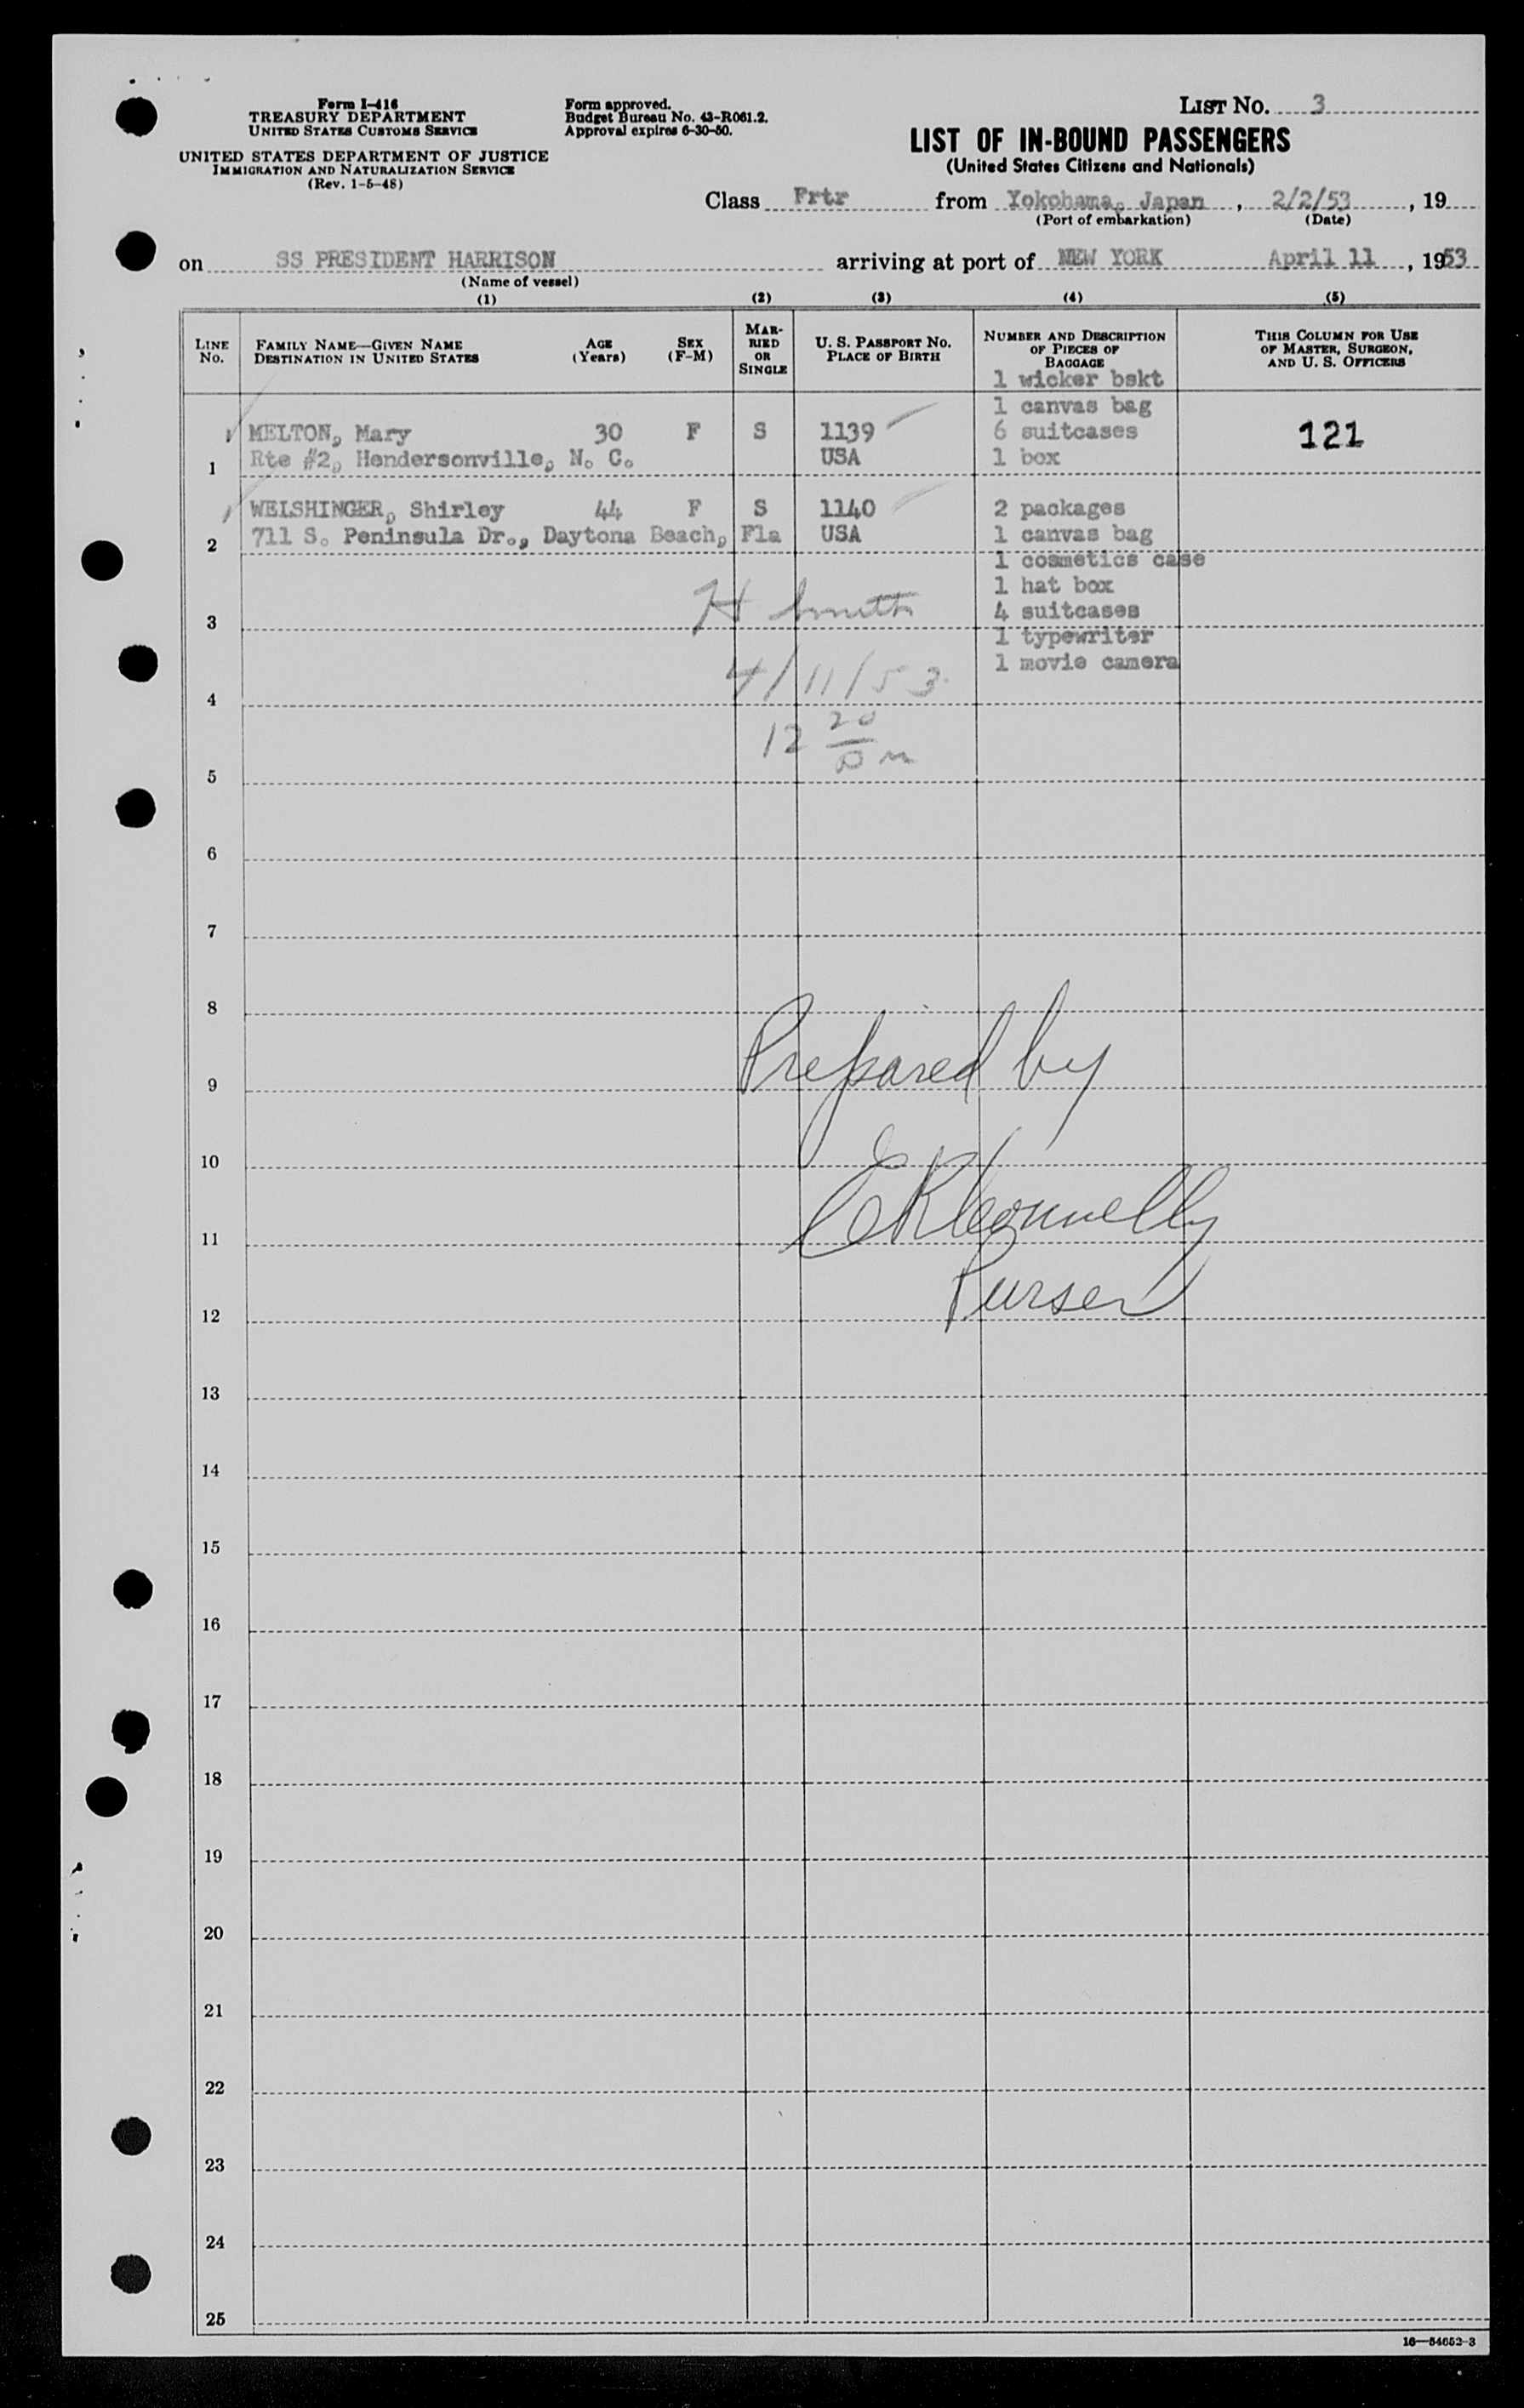 Form I-416
TREASURY DEPARTMENT
UNITED STATES CUSTOMS SERVICE
UNITED STATES DEPARTMENT OF JUSTICE
IMMIGRATION AND NATURALIZATION SERVICE
(Rev. 1-5-48)
Form approved.
Budget Bureau No. 43-R061.2.
Approval expires 6-30-50.
LIST No. 3
LIST OF IN-BOUND PASSENGERS
(United States Citizens and Nationals)
Class Frtr from Yokohama, Japan, 2/2/53, 19
(Port of embarkation) (Date)
on SS PRESIDENT HARRISON arriving at port of NEW YORK April 11, 1953
(Name of vessel)
(1) (2) (3) (4) (5)
LINE No.
FAMILY NAME—GIVEN NAME
DESTINATION IN UNITED STATES
AGE (Years)
SEX (F-M)
MARRIED OR SINGLE
U. S. PASSPORT No.
PLACE OF BIRTH
NUMBER AND DESCRIPTION OF PIECES OF BAGGAGE
THIS COLUMN FOR USE OF MASTER, SURGEON, AND U. S. OFFICERS
1 wicker bskt
1 canvas bag
MELTON, Mary 30 F S 1139 6 suitcases 121
1 Rte #2, Hendersonville, N. C. USA 1 box
WEISHINGER, Shirley 44 F S 1140 2 packages
2 711 S. Peninsula Dr., Daytona Beach, Fla USA 1 canvas bag
1 cosmetics case
1 hat box
3 H Smith 4 suitcases
1 typewriter
4/11/53 1 movie camera
4
12 20 pm
5
6
7
8
Prepared by
9
10
E R Connelly
11
Purser
12
13
14
15
16
17
18
19
20
21
22
23
24
25
16—54652-3